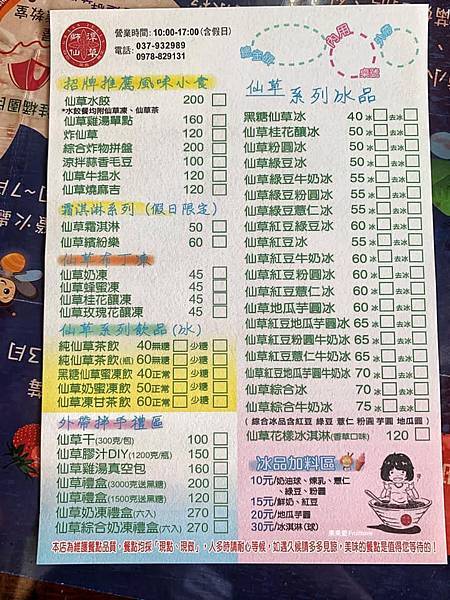 師潭
仙草
營業時間: 10:00-17:00(含假日)
電話: 037-932989
0978-829131
內用
外帶
桌號
招牌推薦風味小食
仙草水餃 200
*水餃餐均附仙草凍、仙草茶
仙草雞湯單點 160
炸仙草 120
綜合炸物拼盤 200
涼拌蒜香毛豆 100
仙草牛搵水 120
仙草燒麻吉 120
霜淇淋系列 (假日限定)
仙草霜淇淋 50
仙草繽紛樂 60
仙草布丁凍
仙草奶凍 45
仙草蜂蜜凍 45
仙草桂花釀凍 45
仙草玫瑰花釀凍 45
仙草系列飲品(冰)
純仙草茶飲 40無糖 少糖
純仙草茶飲(瓶) 60無糖 少糖
黑糖仙草蜜凍飲 40正常 少糖
仙草奶蜜凍飲 50正常 少糖
仙草凍甘茶飲 60正常 少糖
外帶拌手禮區
仙草干(300克/包) 100
仙草膠汁DIY(1200克/瓶) 150
仙草雞湯真空包 160
仙草禮盒(3000克送黑糖) 120
仙草禮盒(1500克送黑糖) 120
仙草奶凍禮盒(六入) 270
仙草綜合奶凍禮盒(六入) 270
仙草系列冰品
黑糖仙草冰 40 冰 去冰
仙草桂花釀冰 50 冰 去冰
仙草粉圓冰 50 冰 去冰
仙草綠豆冰 50 冰 去冰
仙草綠豆牛奶冰 55 冰 去冰
仙草綠豆粉圓冰 55 冰 去冰
仙草綠豆薏仁冰 55 冰 去冰
仙草紅豆綠豆冰 60 冰 去冰
仙草紅豆冰 55 冰 去冰
仙草紅豆牛奶冰 60 冰 去冰
仙草紅豆粉圓冰 60 冰 去冰
仙草紅豆薏仁冰 60 冰 去冰
仙草地瓜芋圓冰 60 冰 去冰
仙草紅豆地瓜芋圓冰 65 冰 去冰
仙草紅豆粉圓牛奶冰 65 冰 去冰
仙草紅豆薏仁牛奶冰 65 冰 去冰
仙草紅豆地瓜芋圓牛奶冰 70 冰 去冰
仙草綜合冰 70 冰 去冰
仙草綜合牛奶冰 75 冰 去冰
( 綜合冰品含紅豆 綠豆 薏仁 粉圓 芋圓 地瓜圓 )
仙草花樣冰淇淋(香草口味) 120
冰品加料區
10元/奶油球、煉乳、薏仁
、綠豆、粉圓
15元/鮮奶、紅豆
20元/地瓜芋圓
30元/冰淇淋(球)
本店為維護餐點品質，餐點均採「現點、現做」，人多時請耐心等候，如遇久候請多多見諒，美味的餐點是值得您等待的！